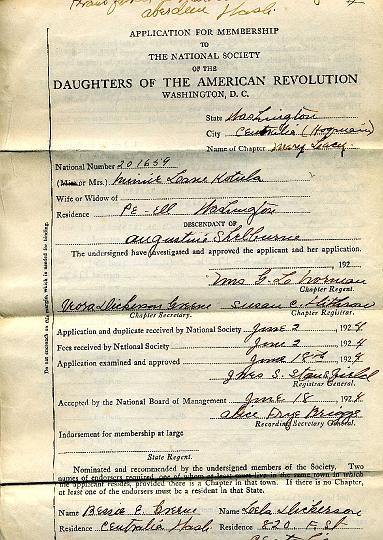 aberdeen Wash.
APPLICATION FOR MEMBERSHIP
TO
THE NATIONAL SOCIETY
OF THE
DAUGHTERS OF THE AMERICAN REVOLUTION
WASHINGTON, D. C.
State Washington
City Centralia (Hoquiam)
Name of Chapter Mary Lacy
National Number 201659
(Miss or Mrs.) Minnie Lane Kotula
Wife or Widow of
Residence Pe-Ell Washington
DESCENDANT OF
Augustine Shelburne
The undersigned have investigated and approved the applicant and her application.
192
Mrs G. Norman
Chapter Regent.
Dickerson Susan C.
Chapter Secretary. Chapter Registrar.
Application and duplicate received by National Society June 2 1924
Fees received by National Society June 2 1924
Application examined and approved June 18th 1924
S.
Registrar General.
Accepted by the National Board of Management June 18 1924
Alice Frye Briggs
Recording Secretary General.
Endorsement for membership at large
State Regent.
Nominated and recommended by the undersigned members of the Society. Two
names of endorsers required, one of whom at least must live in the same town in which
the applicant resides, provided there is a Chapter in that town. If there is no Chapter,
at least one of the endorsers must be a resident in that State.
Name Bessie E. Name Leela Dickerson
Residence Centralia Wash. Residence 820 F St